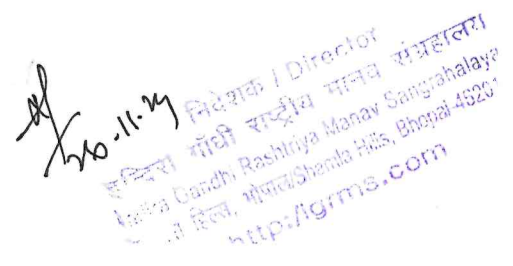 26.11.24
निदेशक / Director
इन्दिरा गाँधी राष्ट्रीय मानव संग्रहालय
Indira Gandhi Rashtriya Manav Sangrahalaya
हिल्स, भोपाल/Shamla Hills, Bhopal-46201
http:/igrms.com